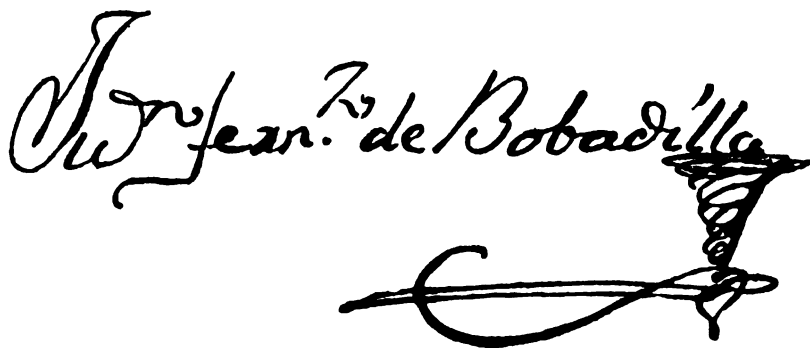 Jun Fern.z de Bobadilla